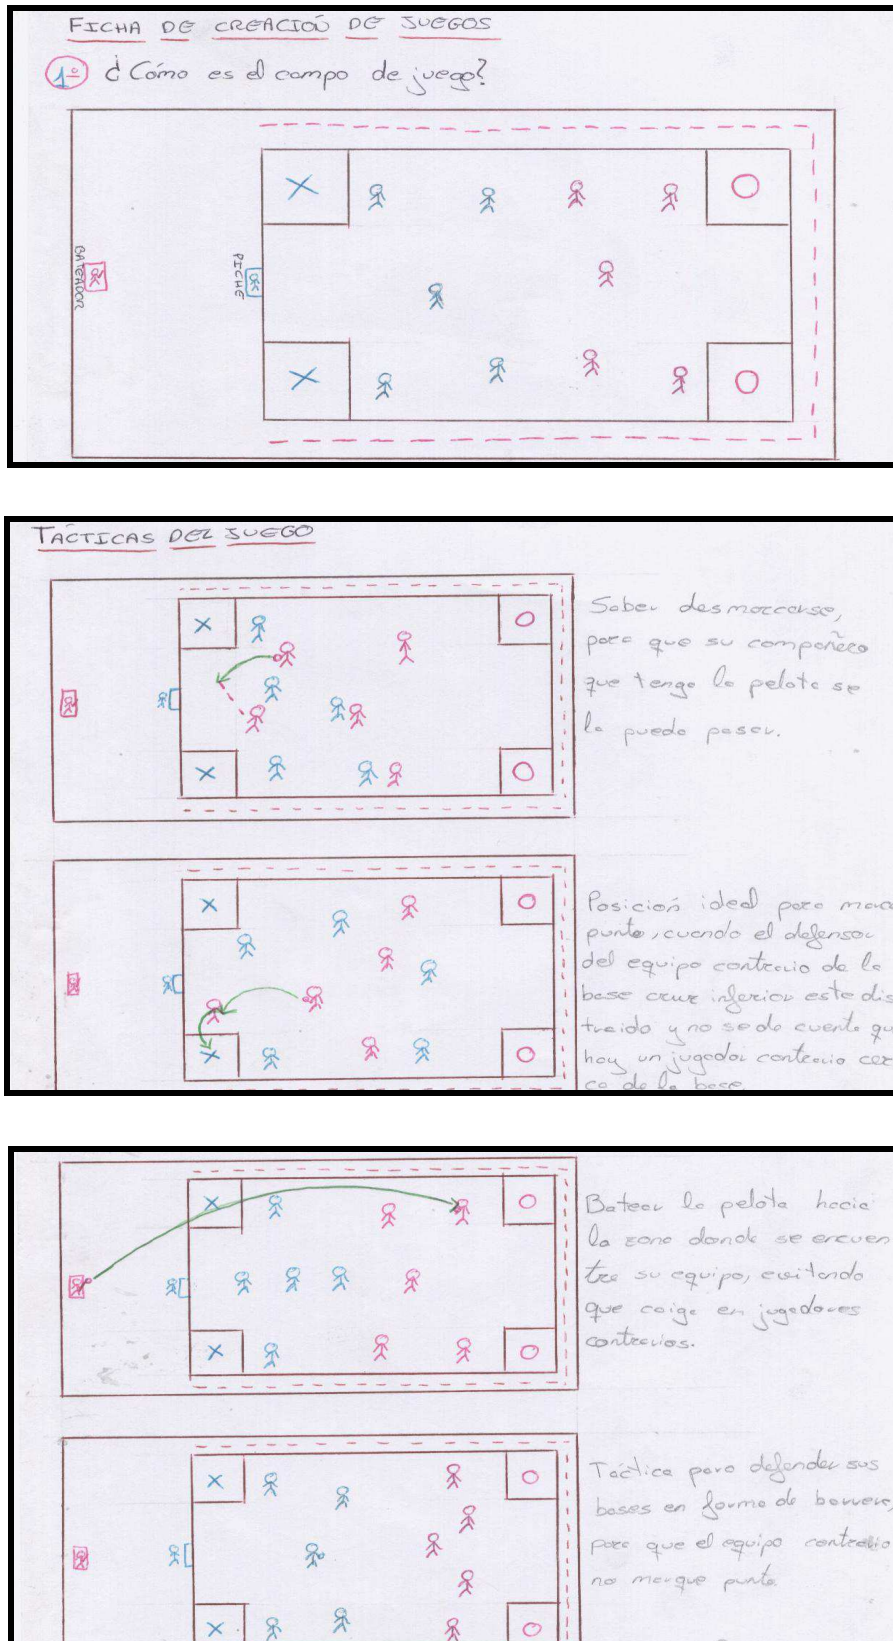 FICHA DE CREACIÓN DE JUEGOS
1º ¿Cómo es el campo de juego?
BATEADOR
PICHE
TACTICAS DEL JUEGO
Saber desmarcarse,
para que su compañero
que tenga la pelota se
la pueda pasar.
Posición ideal para marca
punto, cuando el defensor
del equipo contrario de la
base cruz inferior este dis
traido y no se da cuenta qu
hay un jugador contrario cer
ca de la base.
Batear la pelota hacia
la zona donde se encuen
tra su equipo, evitando
que caiga en jugadores
contrarios.
Táctica para defender sus
bases en forma de barrera,
para que el equipo contrario
no marque punto.